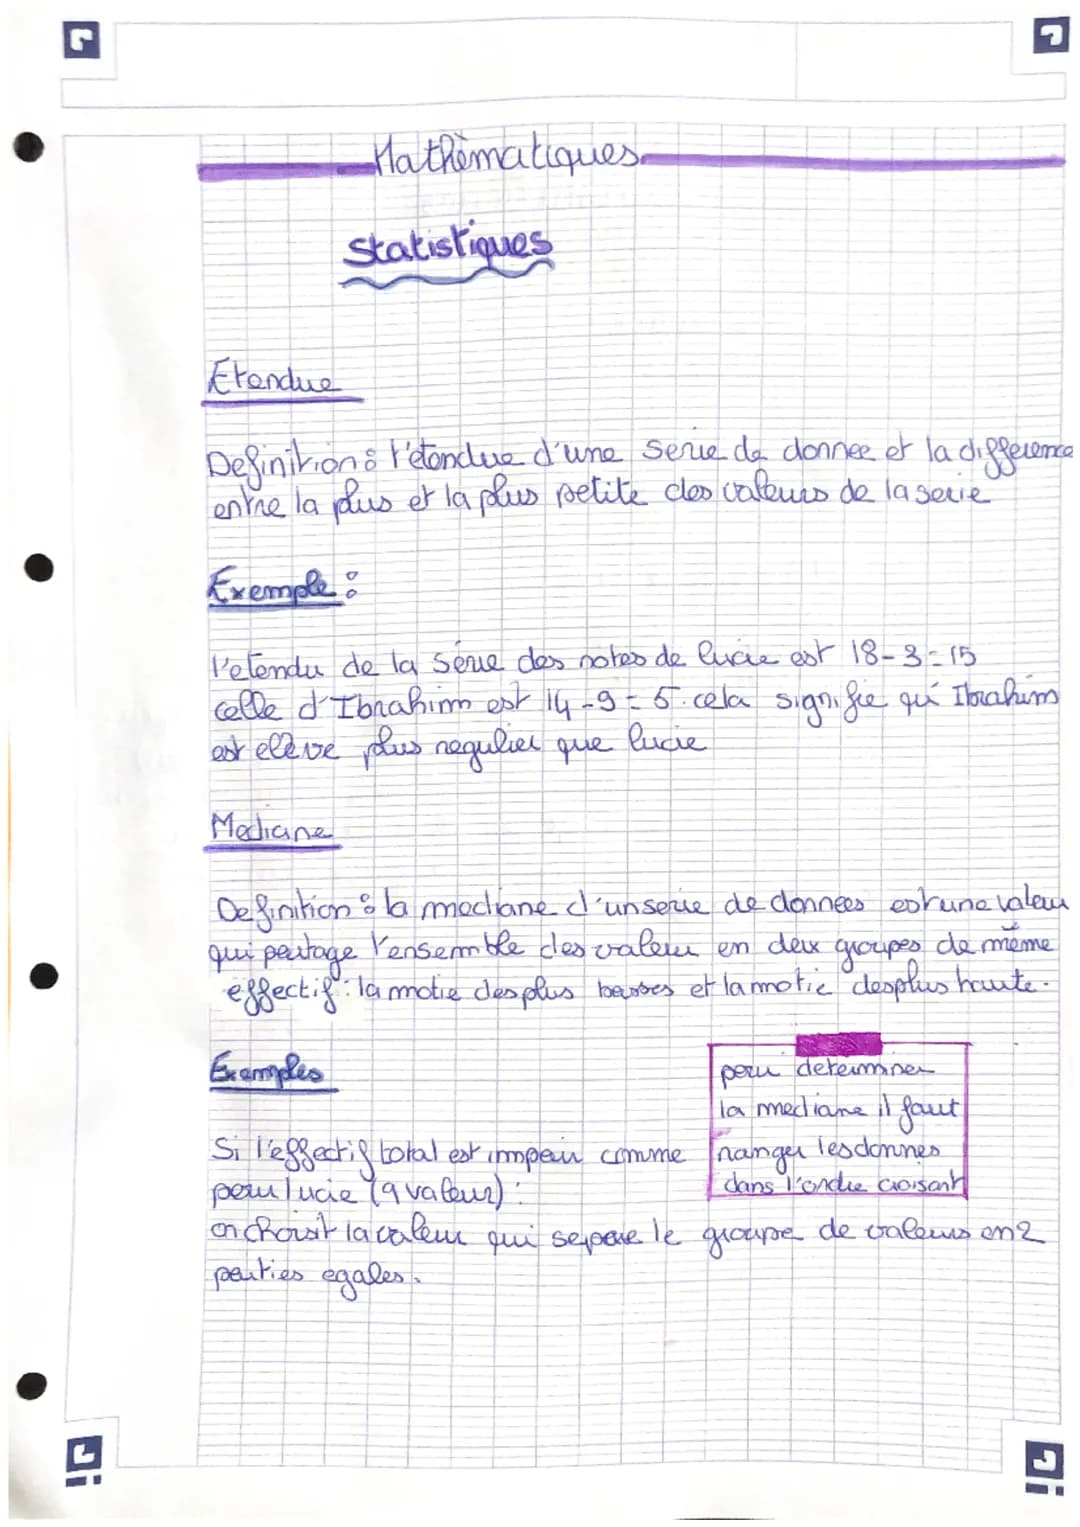 Mathèmatiques
Statistiques
Etendue
Definition : l'étendue d'une serie de donnee et la difference
entre la plus et la plus petite des valeurs de la serie
Exemple :
l'etendu de la série des notes de lucie est 18-3=15
celle d'Ibrahim est 14-9=5. cela signifie qu'Ibrahim
est elève plus regulier que lucie
Mediane
Definition : la mediane d'un serie de donnees est une valeur
qui partage l'ensemble des valeur en deux groupes de même
effectif : la motie des plus basses et la motie des plus haute.
Exemples
pour determiner
la mediane il faut
ranger les donnes
dans l'ordre croisant
Si l'effectif total est impair comme
pour lucie (9 valeur) :
on choisit la valeur qui separe le groupe de valeurs en 2
parties egales.